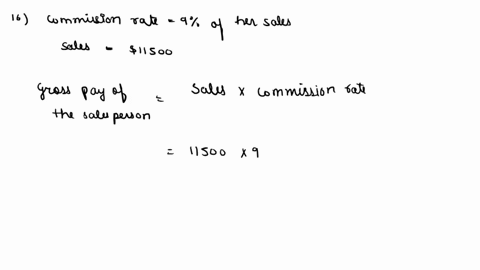 16) Commission rate = 9% of her sales
Sales = $11500
Gross pay of = Sales x commission rate
the salesperson
= 11500 x 9